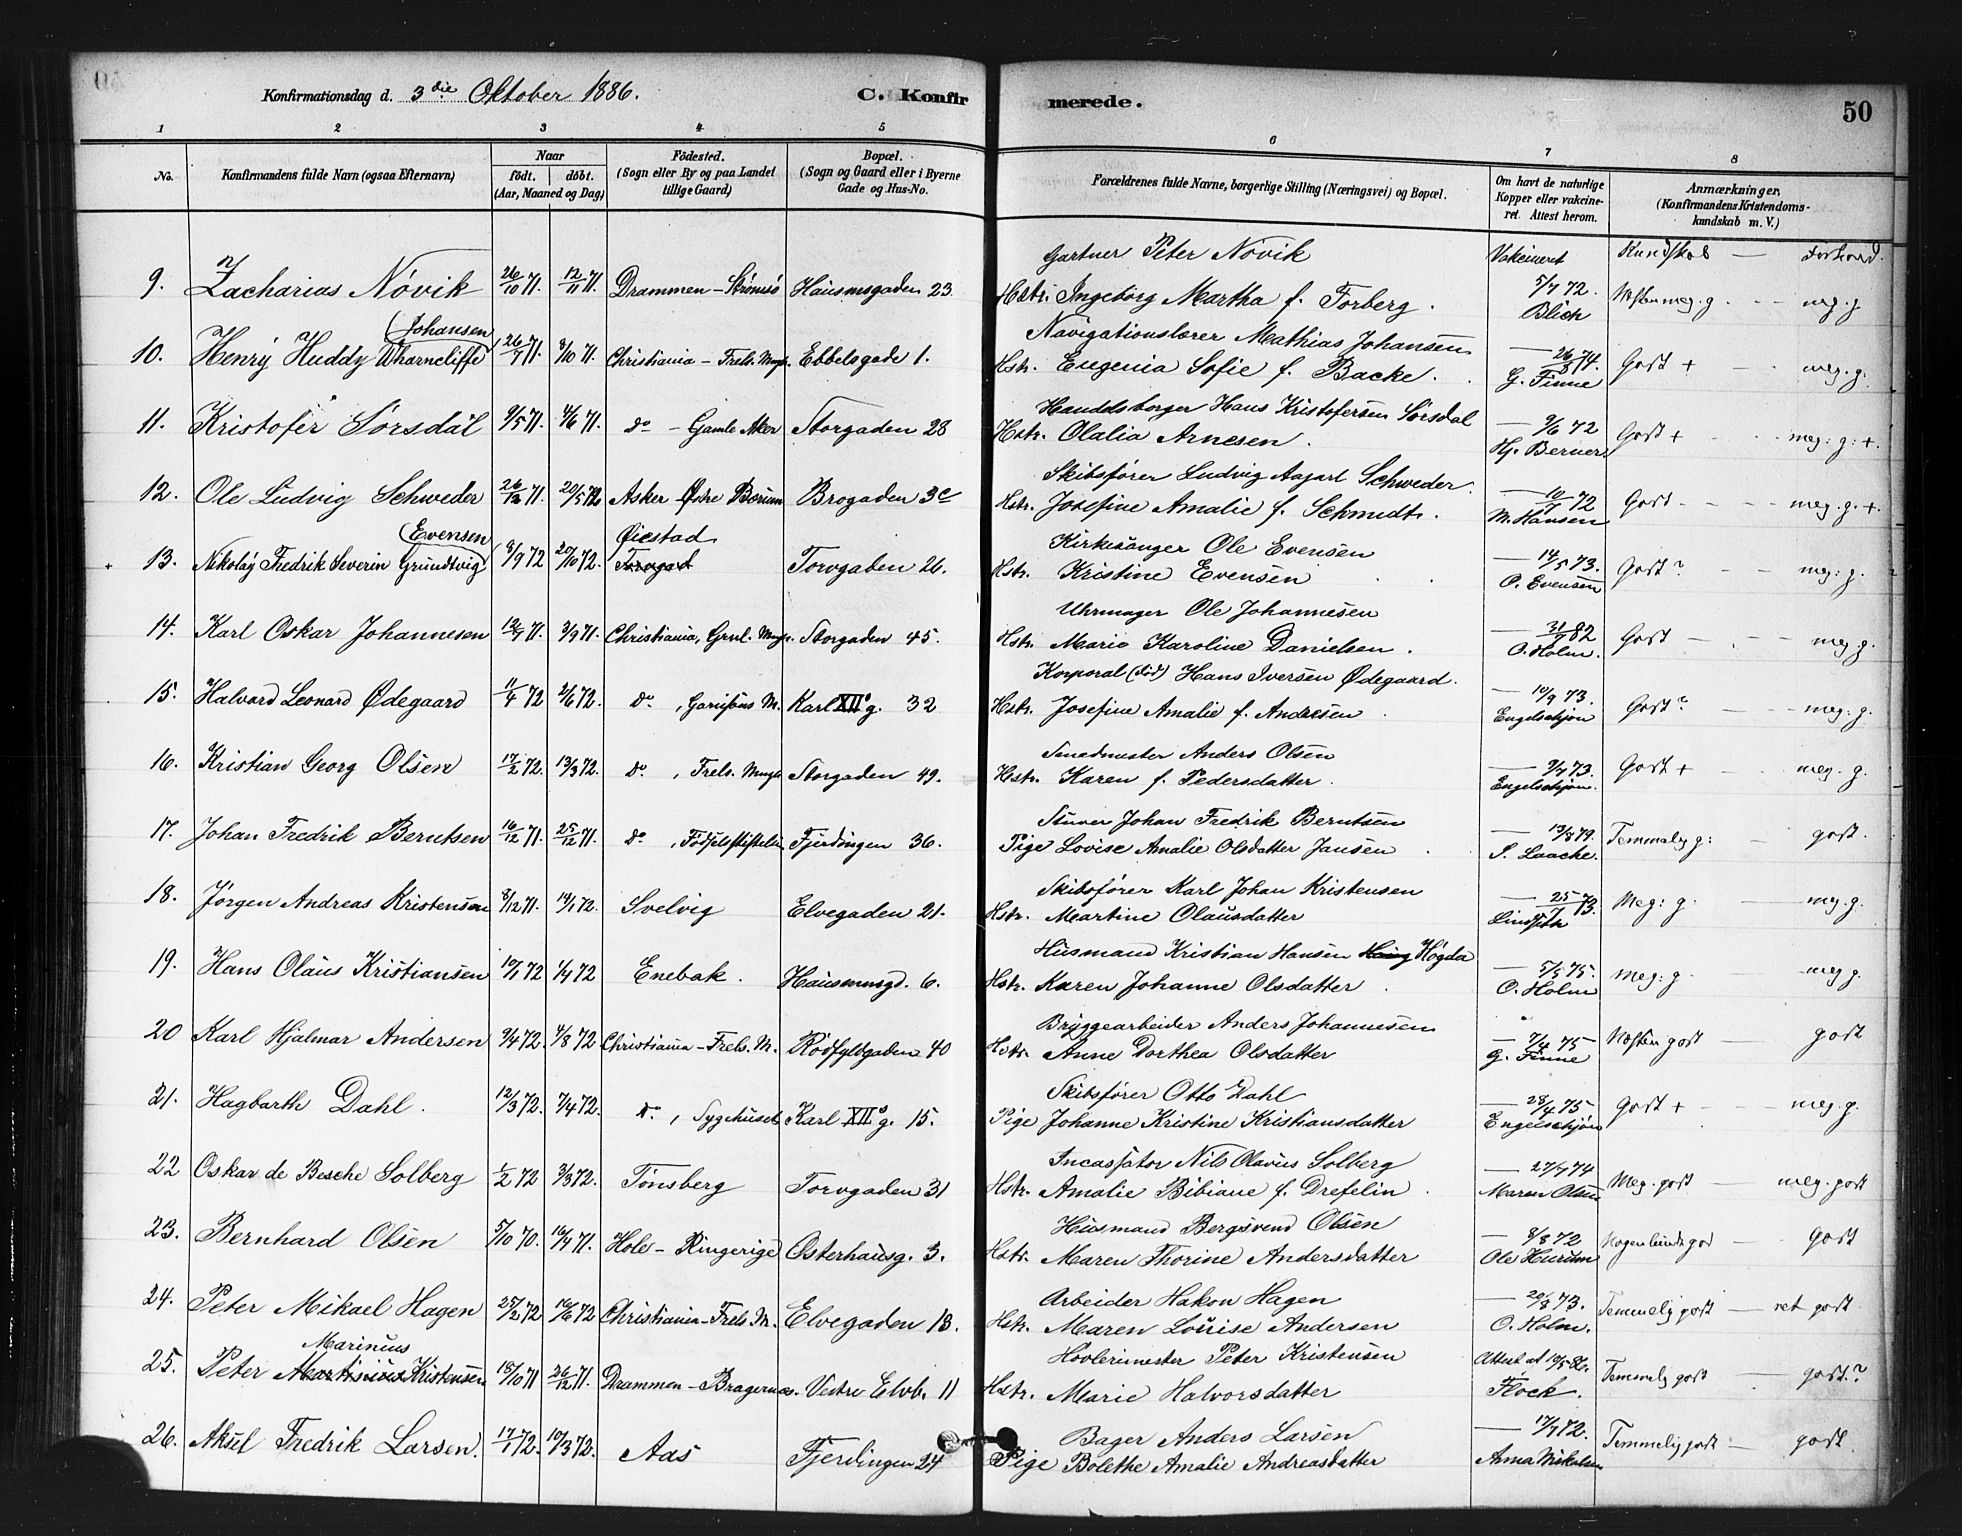 Konfirmationsdag d. 3die Oktober 1886. C. Konfirmerede. 50
1 2 3 4 5 6 7 8
No. Konfirmandens fulde Navn (ogsaa Efternavn) Naar født. døbt. (Aar, Maaned og Dag) Fødested. (Sogn eller By og paa Landet tillige Gaard) Bopæl. (Sogn og Gaard eller i Byerne Gade og Hus-No. Forældrenes fulde Navne, borgerlige Stilling (Næringsvei) og Bopæl. Om havt de naturlige Kopper eller vakcineret. Attest herom. Anmærkninger, (Konfirmandens Kristendomskundskab m. V.)
Gartner Peter Nøvik Vakcineret Kundskab — Forhold.
9. Zacharias Nøvik 26/10 71. 12/11 71. Drammen - Strømsø Hausmsgaden 23 Hstr. Ingeborg Martha f. Forberg. 5/7 72 Blich Næsten meg. g. - meg. g
Johansen Navigationslærer Mathias Johansen
10. Henry Huddy Wharncliffe 26/7 71. 8/10 71. Christiania - Frels. Mngh. Ebbelsgade 1. Hstr. Eugenia Sofie f. Backe. — 26/8 74. G. Finne Godt + - meg. g.
Handelsborger Hans Kristofersen Sørsdal
11. Kristofer Sørsdal 9/5 71. 4/6 71. Do - Gamle Aker Storgaden 28 Hstr. Olalia Arnesen. — 9/6 72 Hj. Berner Godt + - - meg: g: +.
Skibsfører Ludvig Aagart Schweder
12. Ole Ludvig Schweder 26/12 71. 20/5 72 Asker Østre Bærum Brogaden 3c Hstr. Josefine Amalie f. Schmidt. — 10/7 72 M. Hansen Godt - - - meg. g. +.
Evensen Øiestad Kirkesanger Ole Evensen
13. Nikolay Fredrik Severin Grundtvig 8/9 72 20/10 72. Torvgad Torvgaden 26. Hstr. Kristine Evensen — 14/5 73. O. Evensen Godt? — meg: g.
Uhrmager Ole Johannesen
14. Karl Oskar Johannesen 12/7 71. 3/9 71. Christiania, Grnl. Mngh. Storgaden 45. Hstr. Marie Karoline Danielsen. — 31/7 82 O. Holm. Godt — — meg. g.
Korporal (död) Hans Iversen Ødegaard.
15. Halvard Leonard Ødegaard 11/4 72 2/6 72. Do. , Garnisons M. Karl XII g. 32 Hstr. Josefine Amalie f. Andresen — 10/9 73. Engelschjøn Godt? - - meg: g.
Smedmester Anders Olsen
16. Kristian Georg Olsen 17/2 72. 13/3 72. Do. , Frels. Mngh Storgaden 49. Hstr. Karen f. Pedersdatter. — 9/7 73. Engelschjøn. Godt + - meg. g.
Stuver Johan Fredrik Berntsen
17. Johan Fredrik Berntsen 16/12 71. 25/12 71. Do. , Fødselsstiftelsen Fjerdingen 36. Pige Lovise Amalie Olsdatter Jansen — 13/8 79. S. Laache. Temmelig g: - godt.
Skibsfører Karl Johan Kristensen
18. Jørgen Andreas Kristensen 8/12 71. 14/1 72. Svelvig Elvegaden 21. Hstr. Martine Olausdatter — 25/7 73. Meg: g. — meg. g.
Husmand Kristian Hansen Høgda
19. Hans Olaus Kristiansen 10/1 72 1/4 72 Enebak. Hausmnsgd. 6. Hstr. Karen Johanne Olsdatter. — 5/5 75. O. Holm Meg: g — meg g.
Bryggearbeider Anders Johannesen
20 Karl Hjalmar Andersen 9/4 72. 4/8 72 Christiania - Frels. M. Rødfyldgaden 40 Hstr. Anne Dorthea Olsdatter — 7/4 75 G. Finne Næsten godt — godt
Skibsfører Otto Dahl
21. Hagbarth Dahl. 12/3 72. 7/4 72. Do. , Sygehuset Karl XII g. 15. Pige Johanne Kristine Kristiansdatter — 28/4 75 Engelschjøn Godt + - - meg. g.
Incassator Nils Olavus Solberg
22 Oskar de Besche Solberg 1/2 72 3/3 72. Tønsberg Torvgaden 31 Hstr. Amalie Bibiane f. Drefelin — 27/7 74 Maren Olsen Meg. godt — meg. godt
Husmand Bergsvend Olsen
23. Bernhard Olsen 5/10 70. 16/4 71. Hole - Ringerige Osterhausg. 3. Hstr. Maren Thorine Andersdatter — 8/8 72 Nogenlunde god — godt
Arbeider Hakon Hagen
24. Peter Mikael Hagen 25/2 72 16/6 72 Christiania - Frels. M. Elvegaden 18. Hstr. Maren Louise Andersen — 20/8 73. O. Holm. Temmelig godt — ret godt
Marinius Høvlerimester Peter Kristensen
25. Peter Martinius Kristensen 18/10 71 26/12 71. Drammen - Bragernæs. Vestre Elvb. 11 Hstr. Marie Halvorsdatter Attest at 10/5 86. Flock. Temmelig godt — godt?
Bager Anders Larsen
26. Aksel Fredrik Larsen. 17/1 72. 10/3 72. Aas Fjerdingen 24 Pige Bolethe Amalie Andreasdatter — 17/7 82. Anna Nikolsen Temmelig godt — godt.